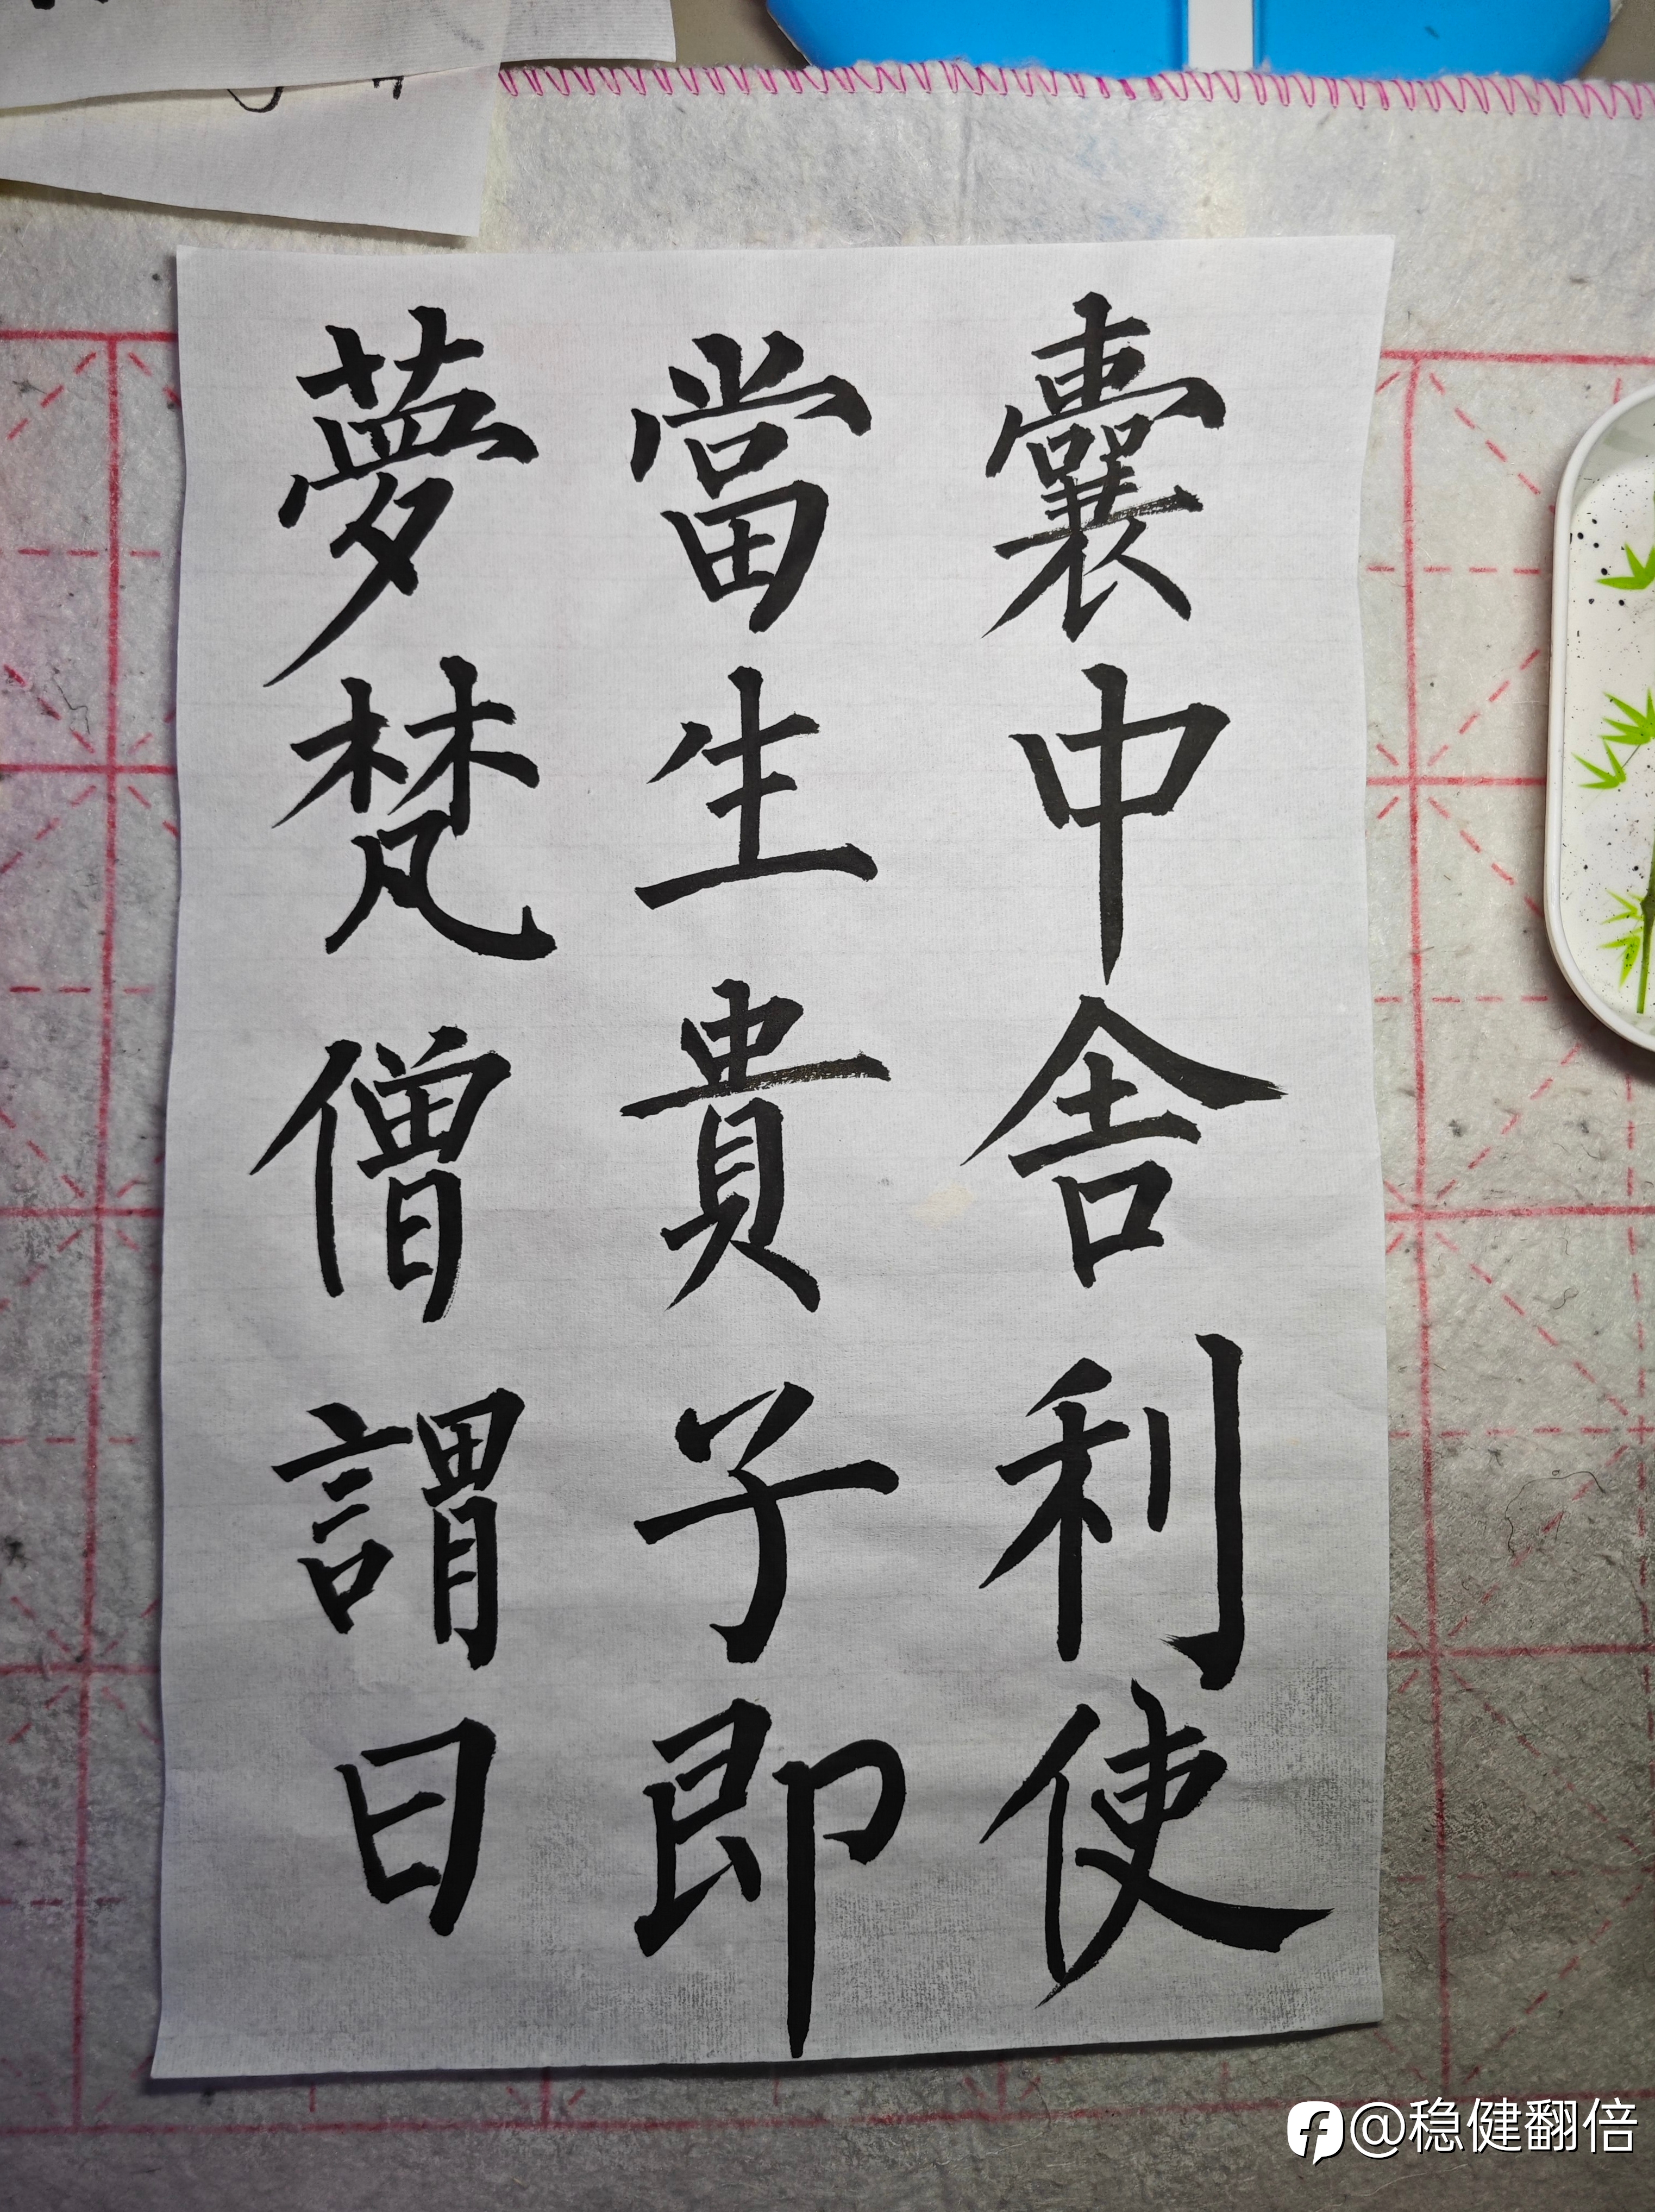 夢梵僧謂曰
當生貴子即
囊中舍利使
@稳健翻倍